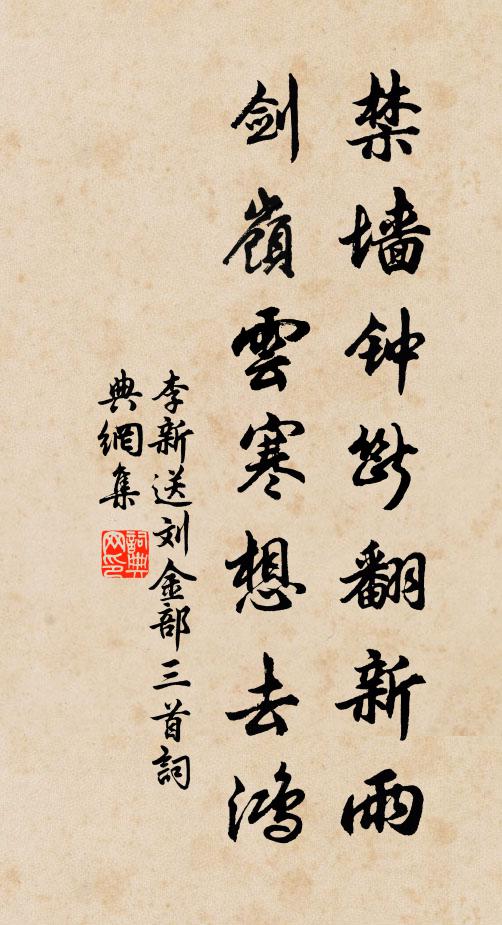 禁墙钟断翻新雨
剑嶺雲寒想去鸿
李新送刘金部三首詞
典網集
詞典
网印